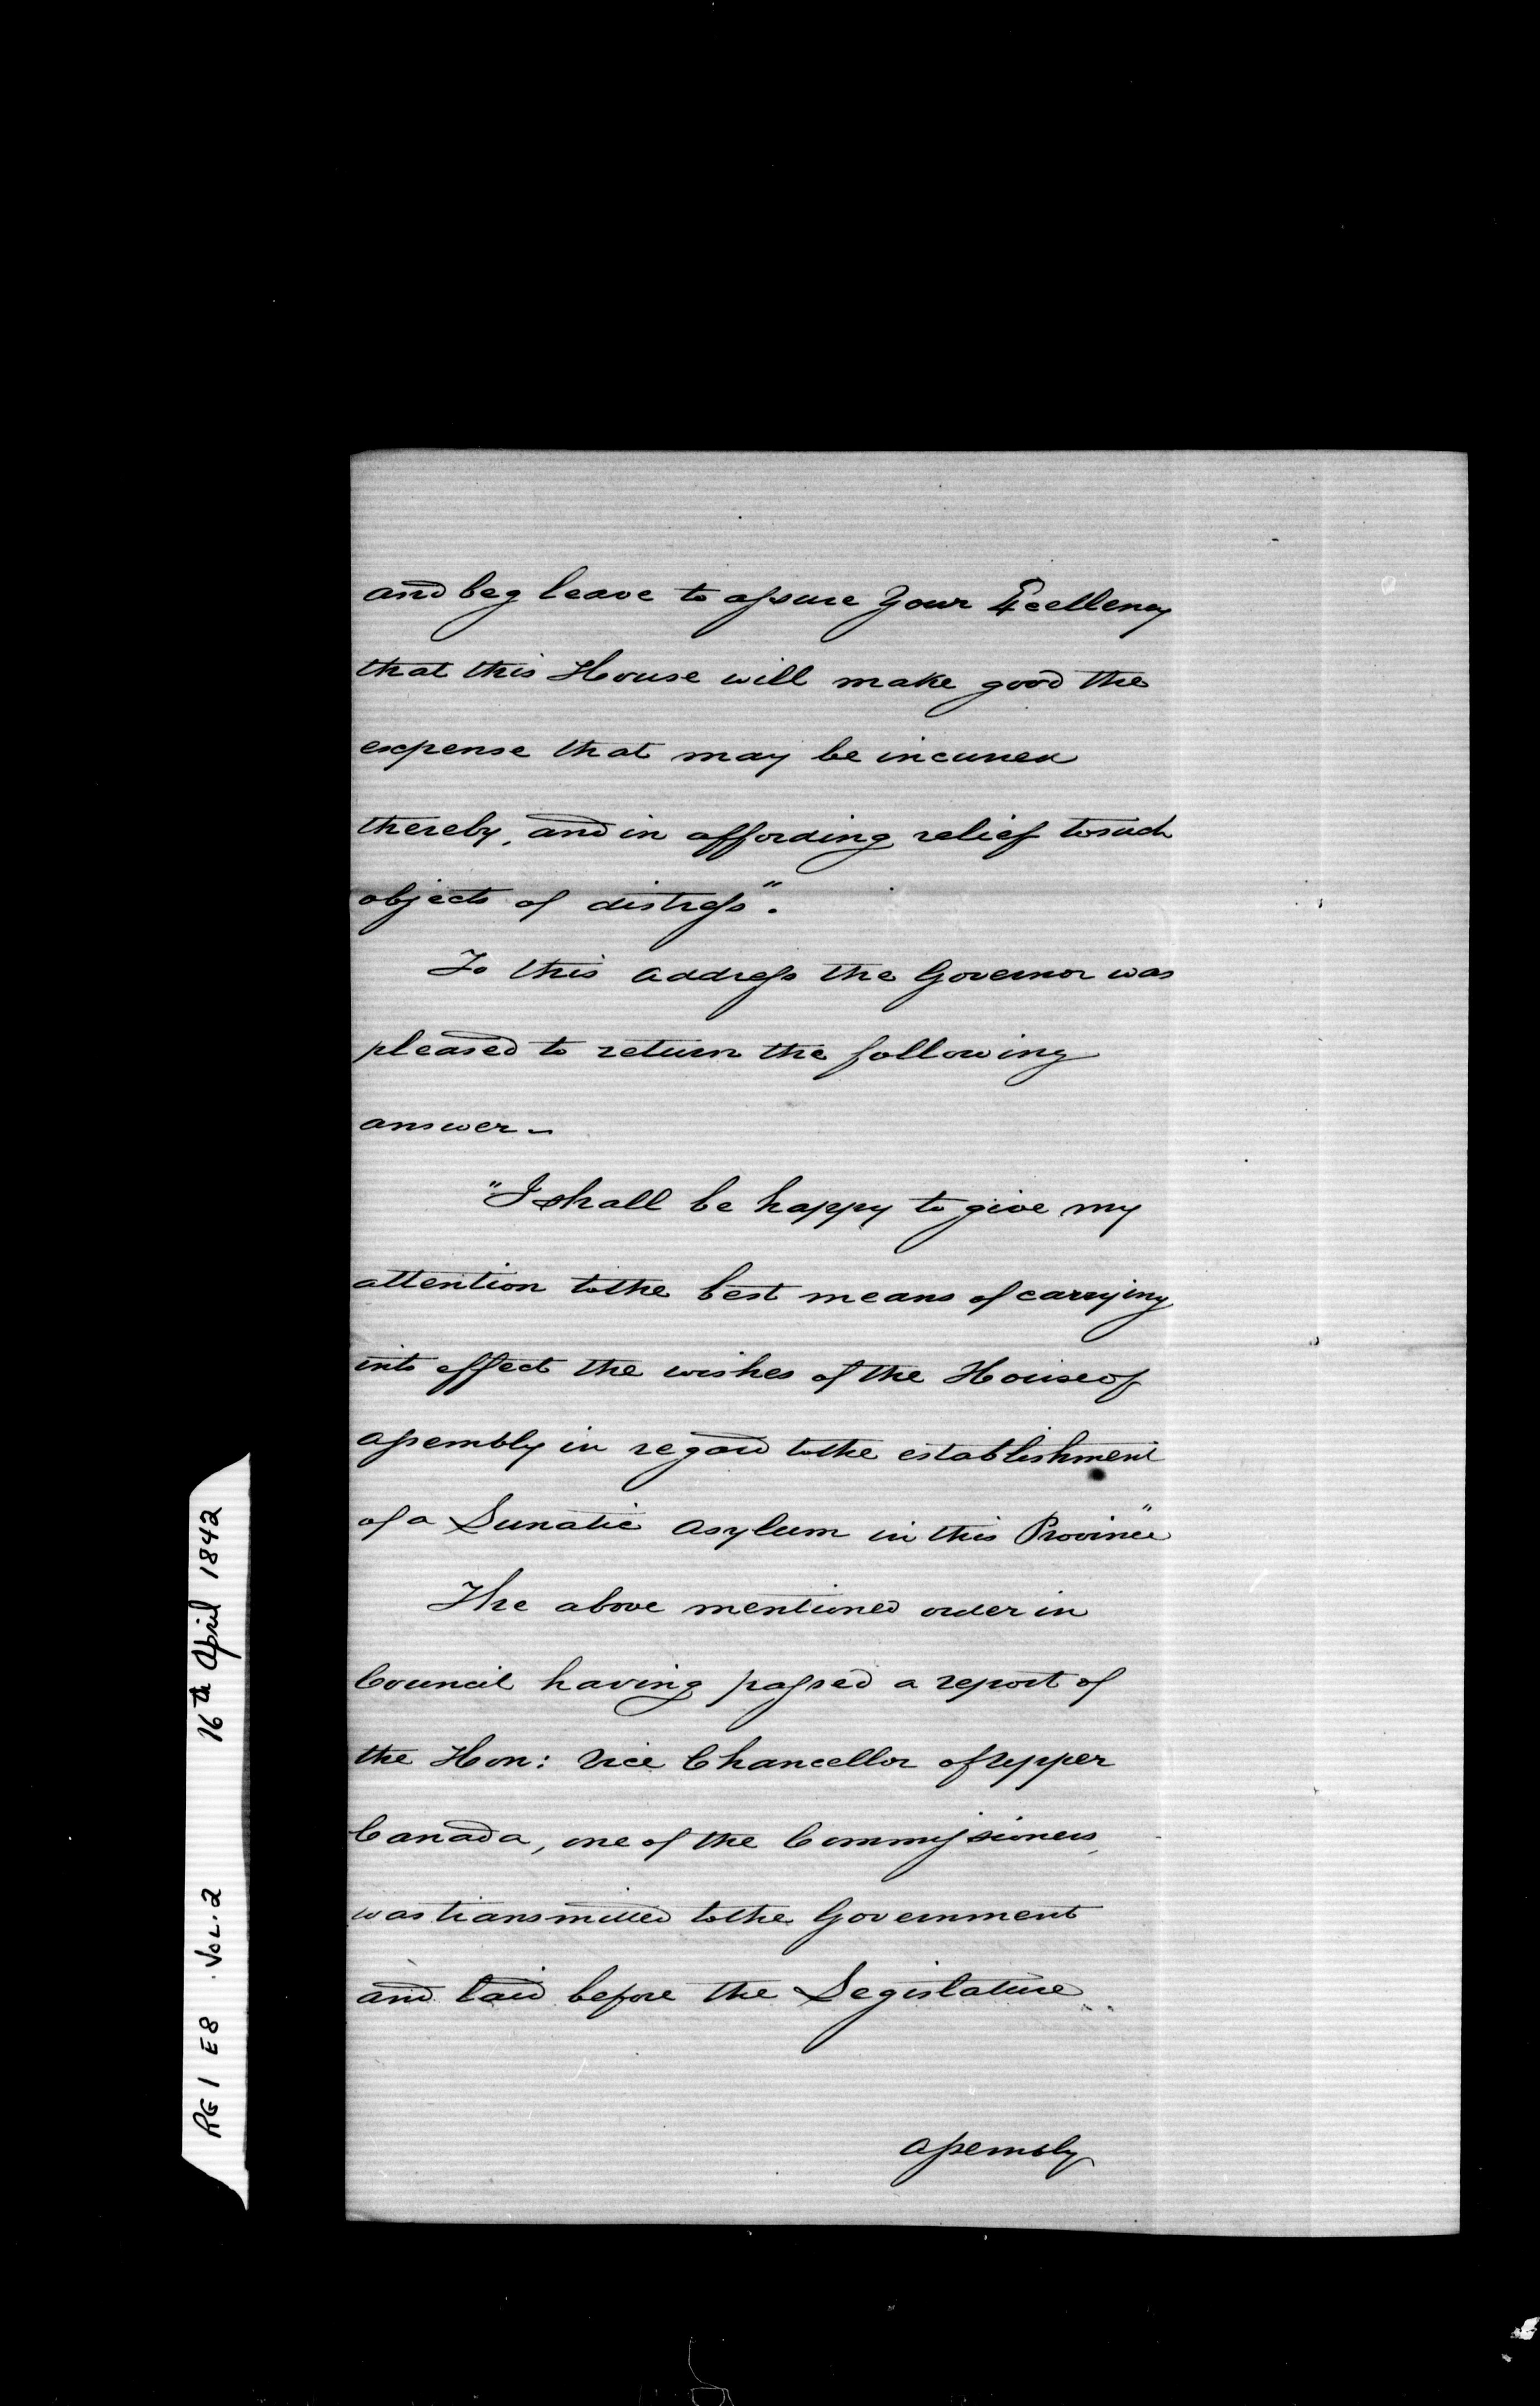 and beg leave to assure Your Excellency
that this House will make good the
expense that may be incurred
thereby, and in affording relief to such
objects of distress".
To this address the Governor was
pleased to return the following
answer –
"I shall be happy to give my
attention to the best means of carrying
into effect the wishes of the House of
assembly in regard to the establishment
of a Lunatic Asylum in this Province"
The above mentioned order in
Council having passed a report of
the Hon: Vice Chancellor of Upper
Canada, one of the Commissioners,
was transmitted to the Government
and laid before the Legislature
assembly
RG 1 E8 VOL. 2 16th April 1842